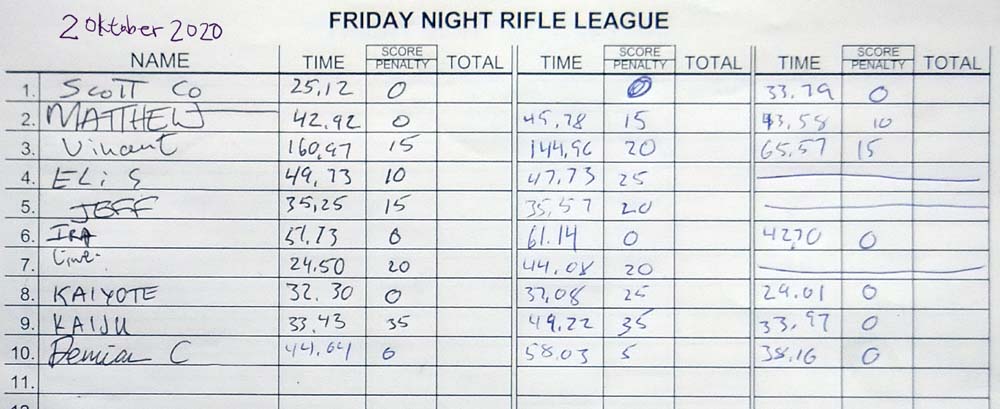 2 Oktober 2020 FRIDAY NIGHT RIFLE LEAGUE
NAME TIME SCORE PENALTY TOTAL TIME SCORE PENALTY TOTAL TIME SCORE PENALTY TOTAL
1. Scott Co 25.12 0 33.79 0
2. MATTHEW 42.92 0 45.78 15 43.58 10
3. Vincent 160.97 15 144.96 20 65.57 15
4. ELi S 49.73 10 47.73 25
5. JEFF 35.25 15 35.57 20
6. IRA 0 61.14 0 42.70 0
7. 24.50 20 44.08 20
8. KAIYOTE 32.30 0 37.08 25 29.01 0
9. KAIJU 33.43 35 49.22 35 33.97 0
10. Demian C 44.64 0 58.03 5 38.16 0
11.